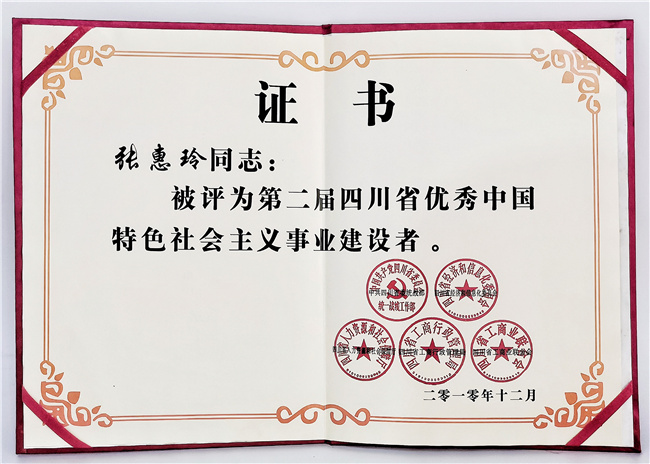 证 书
张惠玲同志：
被评为第二届四川省优秀中国
特色社会主义事业建设者。
中国共产党四川省委员会
统一战线工作部
中共四川省委统战部
四川省经济和信息化委员会
四川省工商行政管理局
四川省工商业联合会
二零一零年十二月